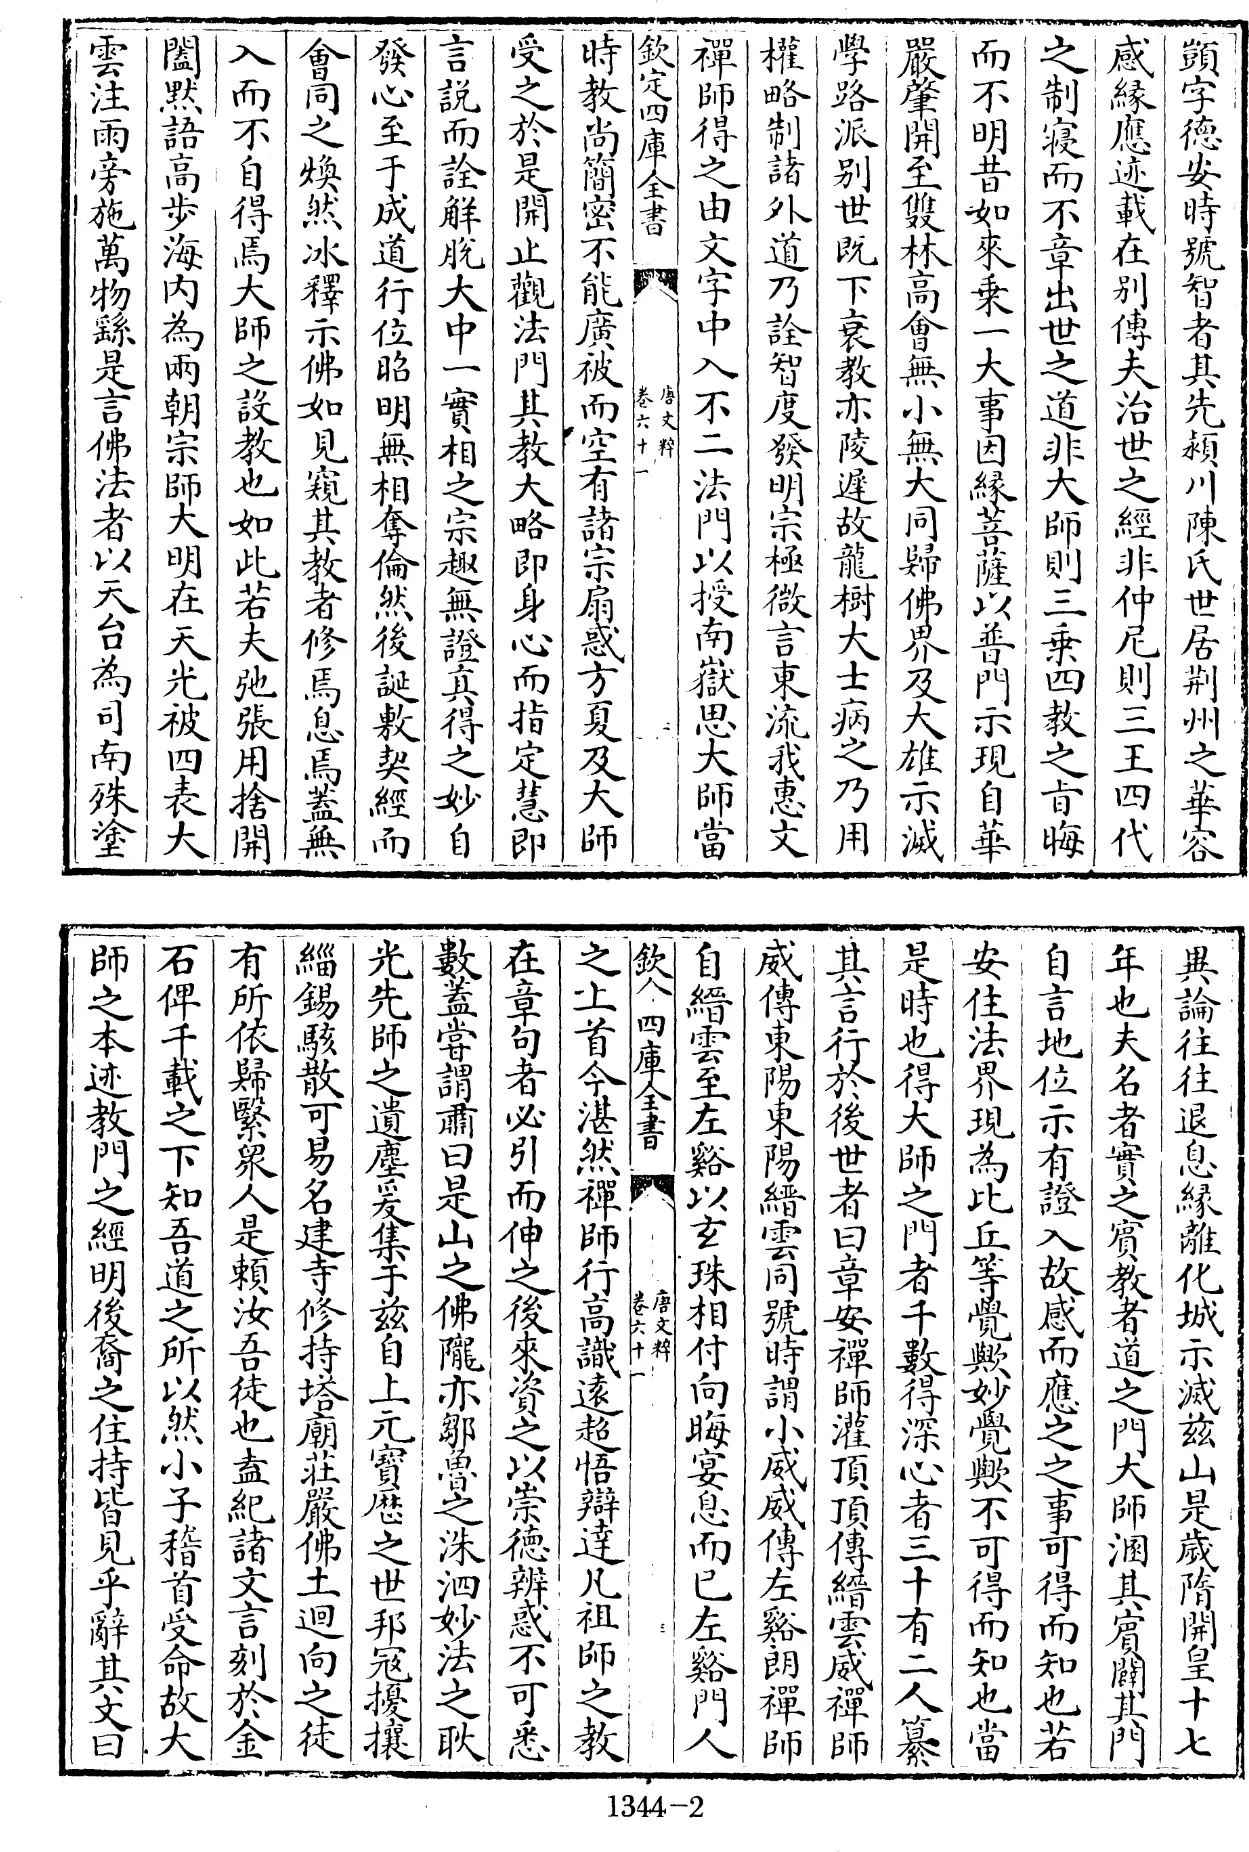 顗字德安時號智者其先潁川陳氏世居荆州之華容
感緣應迹載在别傳夫治世之經非仲尼則三王四代
之制寑而不章出世之道非大師則三乗四教之㫖晦
而不明昔如來乗一大事因緣菩薩以普門示現自華
嚴肇開至雙林高會無小無大同歸佛界及大雄示滅
學路派别世既下衰教亦陵遲故龍樹大士病之乃用
權略制諸外道乃詮智度發明宗極微言東流我惠文
禪師得之由文字中入不二法門以授南嶽思大師當
欽定四庫全書
唐文粹
卷六十一
二
時教尚簡密不能廣被而空有諸宗扇惑方夏及大師
受之於是開止觀法門其教大略即身心而指定慧即
言説而詮解脱大中一實相之宗趣無證真得之妙自
發心至于成道行位昭明無相奪倫然後誕敷契經而
會同之煥然冰釋示佛如見窺其教者修焉息焉蓋無
入而不自得焉大師之設教也如此若夫弛張用捨開
闔黙語高步海内為兩朝宗師大明在天光被四表大
雲注雨旁施萬物繇是言佛法者以天台為司南殊塗
異論往往退息緣離化城示滅兹山是歲隋開皇十七
年也夫名者實之賓教者道之門大師溷其賓闢其門
自言地位示有證入故感而應之之事可得而知也若
安住法界現為比丘等覺歟妙覺歟不可得而知也當
是時也得大師之門者千數得深心者三十有二人纂
其言行於後世者曰章安禪師灌頂頂傳縉雲威禪師
威傳東陽東陽縉雲同號時謂小威威傳左谿朗禪師
自縉雲至左谿以玄珠相付向晦宴息而已左谿門人
欽 四庫全書
唐文粹
卷六十一
三
之上首今湛然禪師行高識遠超悟辯達凡祖師之教
在章句者必引而伸之後來資之以崇德辨惑不可悉
數蓋嘗謂肅曰是山之佛隴亦鄒魯之洙泗妙法之耿
光先師之遺塵爰集于兹自上元寶歴之世邦冦擾攘
緇錫駭散可易名建寺修持塔廟莊嚴佛土迴向之徒
有所依歸緊衆人是賴汝吾徒也盍紀諸文言刻於金
石俾千載之下知吾道之所以然小子稽首受命故大
師之本迹教門之經明後裔之住持皆見乎辭其文曰
1344-2